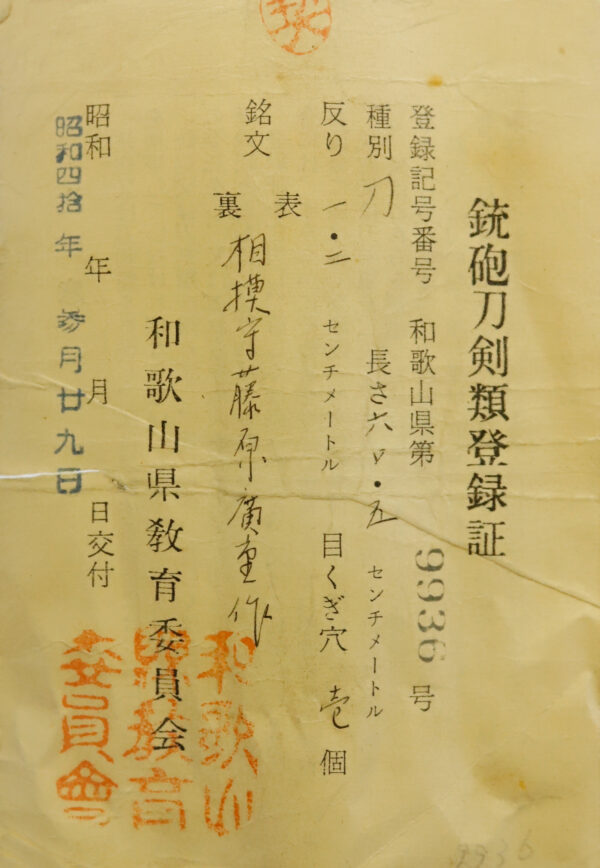 銃砲刀剣類登録証
登録記号番号 和歌山県第 9936 号
種別 刀 長さ六〇・五 センチメートル
反り 一・二 センチメートル 目くぎ穴 壱 個
銘文 表
裏 相模守藤原廣重作
和歌山県教育委員会
昭和 年 月 日交付
昭和四拾年 参月廿九日
和歌山
県教育
委員會
9936